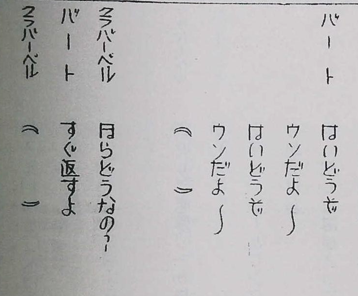 バート　はいどうぞ
ウンだよ〜
はいどうぞ
ウンだよ〜
（　　）
クラバーベル　ほらどうなの？
バート　すぐ返すよ
クラバーベル　（　　）